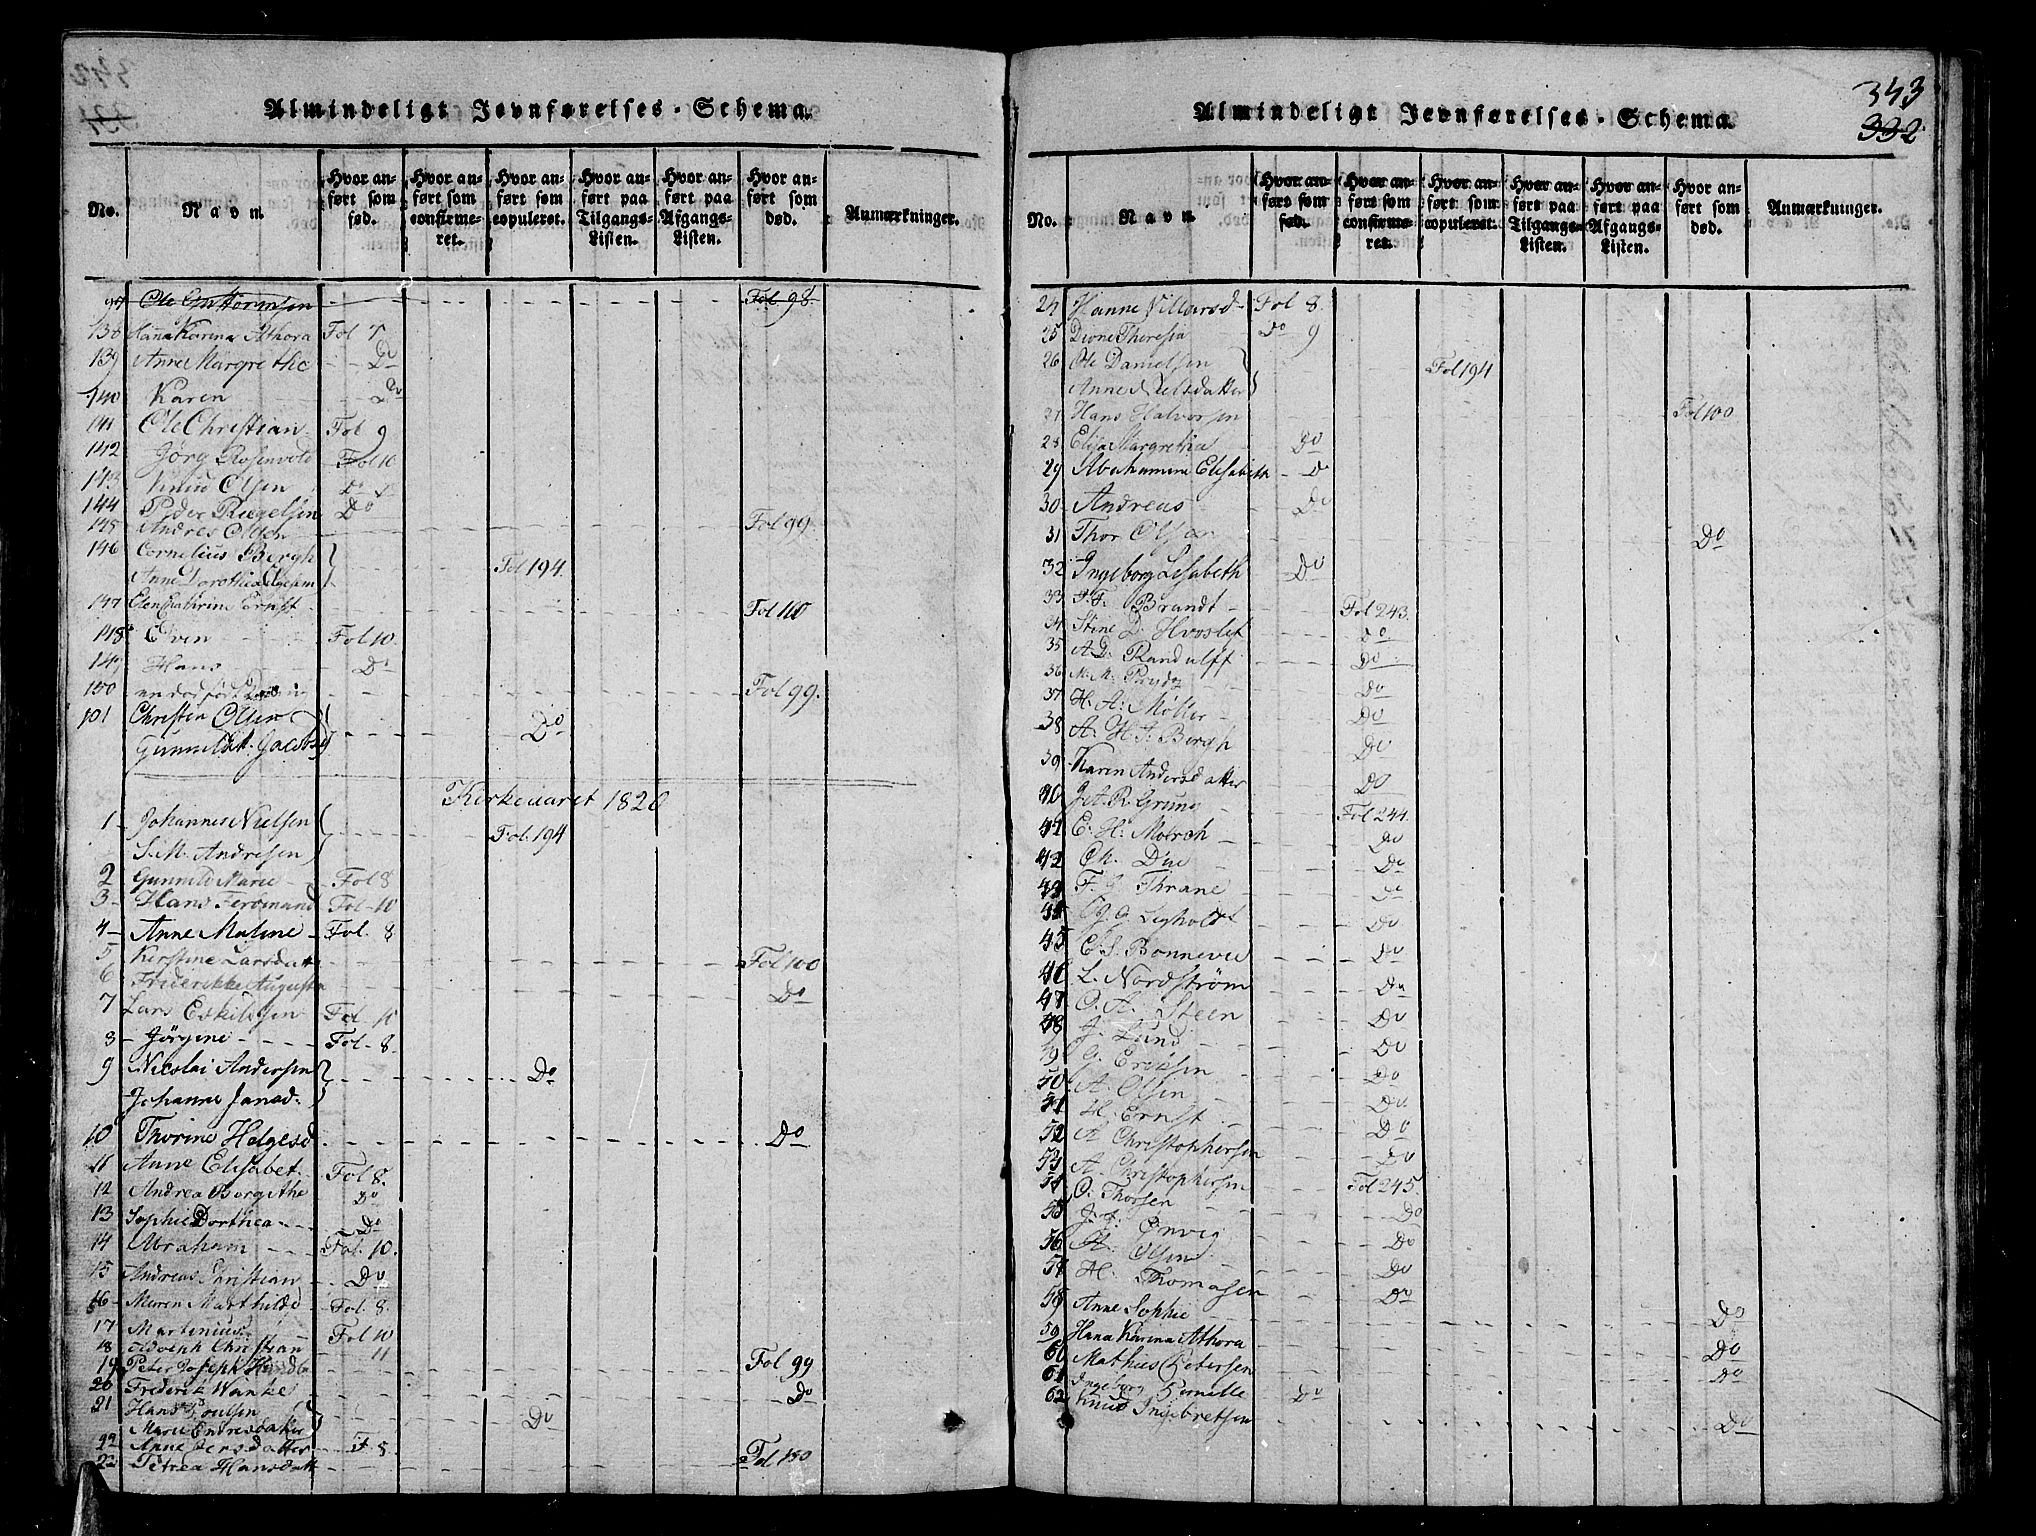 Almindeligt Jevnførelses-Schema.
No. Navn. Hvor anført som fød. Hvor anført som confirmeret. Hvor anført som copuleret. Hvor anført paa Tilgangs-Listen. Hvor anført paa Afgangs-Listen. Hvor anført som død. Anmærkninger.
97 Ole Guttormsen Fol 98.
138 Hana Karina Athora Fol 7
139 Anne Margrethe Do
140 Karen Do
141 Ole Christian Fol 9
142 Jörg Rosenvold Fol 10
143 Knud Olsen Do
144 Peder Riegelsen Do
145 Andres Olsen Fol 99
146 Cornelius Bergh Fol 194.
Anne Dorothea
147 Elen Cathrine Ernst Fol 110
148 Even Fol 10.
149 Hans Do
150 en dødfød Fol 99.
101 Christen Olsen Do
Gunnild Jacobsd
Kirkeaaret 1820
1 Johannes Nielsen Fol. 194
S. M. Andresen
2 Gunnild Marie Fol 8
3 Hans Ferdinand Fol 10
4 Anne Maline Fol. 8
5 Kirstine Larsdatt Fol 100
6 Friderikke Augusta Do
7 Lars Eskildsen Fol 10
8 Jörgine Fol 8.
9 Nicolai Andersen Do
Johanne Jansd.
10 Thorine Helgesd Do
11 Anne Elisabet Fol 8.
12 Andrea Borgithe Do
13 Sophie Dorthea Do
14 Abraham Fol. 10.
15 Andreas Christian Do
16 Maren Marthilde Fol 8.
17 Martinius Fol 10
18 Adolph Christian 11
19 Peter Joseph Fol 99
20 Frederik Wanke Do
21 Hans Poulsen Do
Marie Endresdatter
22 Anne Jensdatter F 8
22 Petrea Hansdatt Fol 100
343
332
Almindeligt Jevnførelses-Schema.
No. Navn. Hvor anført som fød. Hvor anført som confirmeret. Hvor anført som copuleret. Hvor anført paa Tilgangs-Listen. Hvor anført paa Afgangs-Listen. Hvor anført som død. Anmærkninger.
24 Hanne Villarsd Fol 8.
25 Dione Theresia Do 9
26 Ole Danielsen Fol 194
Anne Nielsdatter
27 Hans Halvorsen Fol 100
28 Elisa Margretha Do
29 Abahamine Elisabeth Do
30 Andreas Do
31 Thor Olsen Do
32 Ingeborg Lisabeth Do
33 F. F. Brandt Fol 243.
34 Stine D. Hvoslef Do
35 A. D. Randulff Do
36 M. M. Prydz Do
37 H. A. Möller Do
38 A. H. J. Bergh Do
39 Karen Andersdatter Do
40 Jet. R. Gruns Fol 244.
41 E. H. Molrch Do
42 Ch. Due Do
43 F. G. Thrane Do
44 G. Sigholdt Do
45 C. S. Bonnevie Do
46 L. Nordström Do
47 O. A. Steen Do
48 J. Lund Do
49 G. Eriksen Do
50 A. Olsen Do
51 H. Ernst Do
52 A Christophersen Do
53 A. Christophersen Fol 245.
54 O. Thorsen Do
55 J. J. Envig Do
56 A. Olsen Do
57 H. Thomasen Do
58 Anne Sophie Do
59 Hana Karina Athora Do
60 Mathies Petersen Do
61 Ingeborg Pernille Do
62 Knud Ingebretsen Do